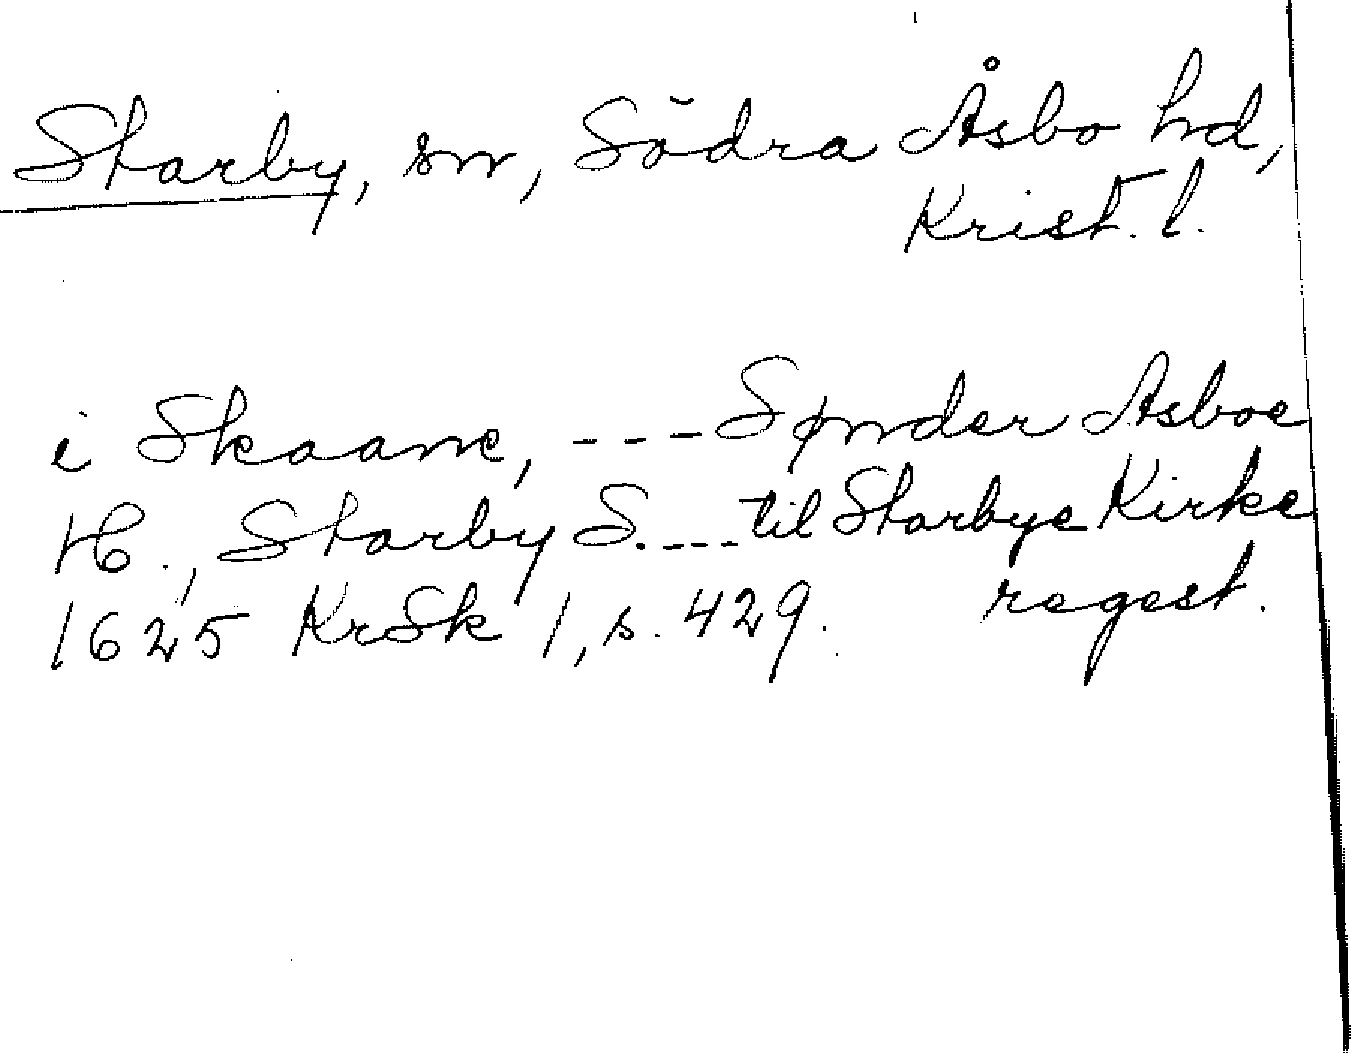 Starby, sn, Södra Åsbo hd,
Krist. l.
i Skaane, --- Sønder Asboe
H., Starby S. --- til Starbye Kirke
1625 KrSk 1, s. 429. regest.